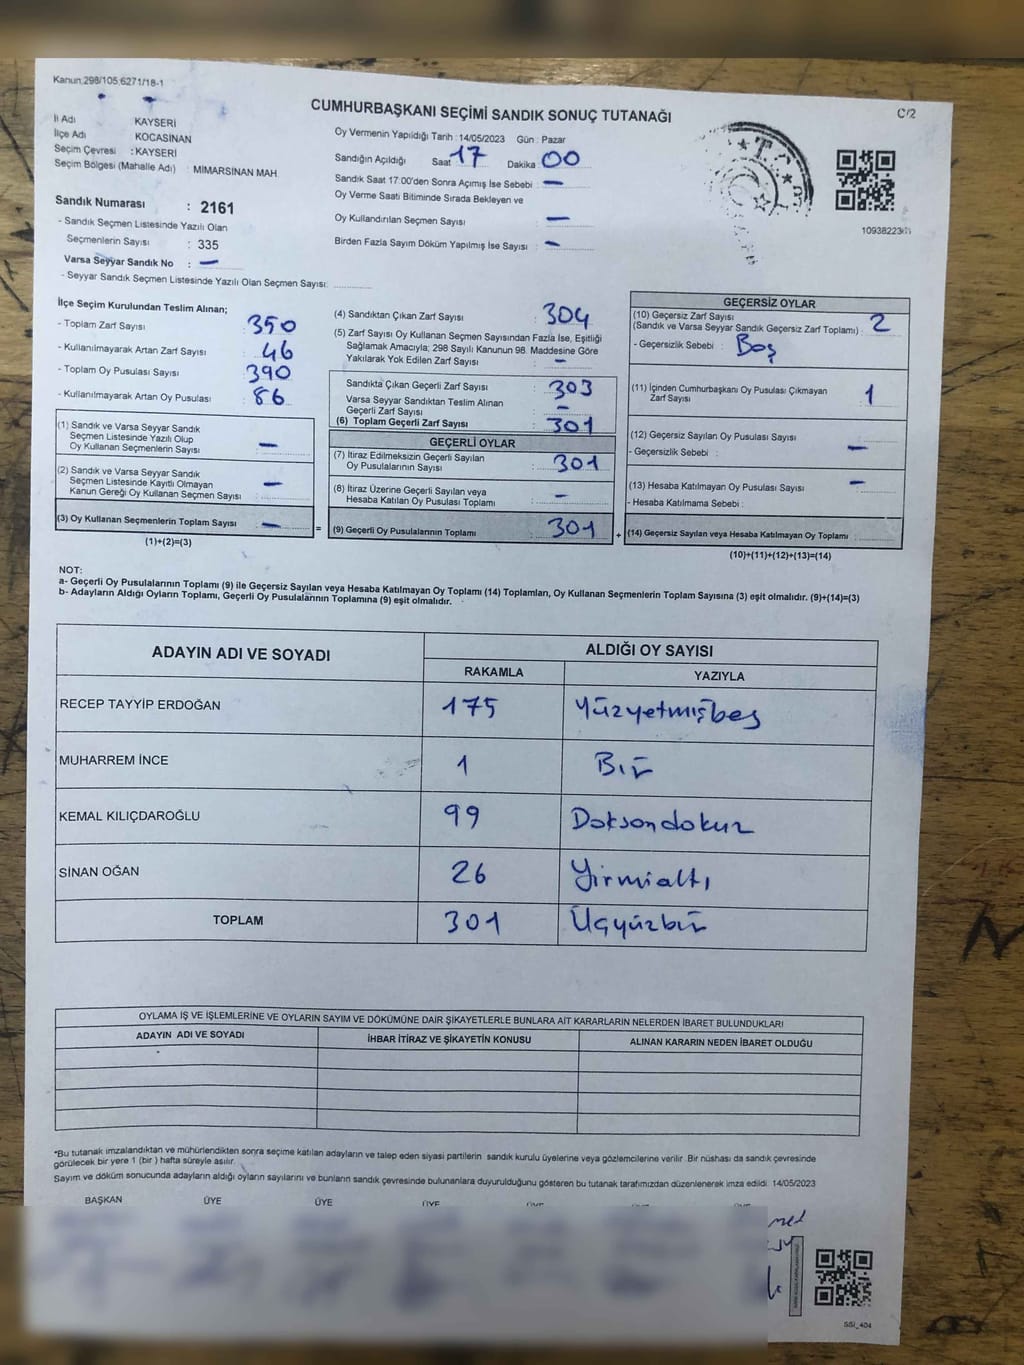 Kanun:298/105,6271/18-1
C/2
CUMHURBAŞKANI SEÇİMİ SANDIK SONUÇ TUTANAĞI
İl Adı KAYSERİ
İlçe Adı KOCASİNAN
Seçim Çevresi : KAYSERİ
Seçim Bölgesi (Mahalle Adı) : MİMARSİNAN MAH.
Sandık Numarası : 2161
- Sandık Seçmen Listesinde Yazılı Olan
Seçmenlerin Sayısı : 335
Varsa Seyyar Sandık No : —
- Seyyar Sandık Seçmen Listesinde Yazılı Olan Seçmen Sayısı:
Oy Vermenin Yapıldığı Tarih : 14/05/2023 Gün : Pazar
Sandığın Açıldığı Saat 17 Dakika 00
Sandık Saat 17:00'den Sonra Açımış İse Sebebi : —
Oy Verme Saati Bitiminde Sırada Bekleyen ve
Oy Kullandırılan Seçmen Sayısı —
Birden Fazla Sayım Döküm Yapılmış İse Sayısı : —
T.C.
İlçe Seçim Kurulundan Teslim Alınan;
- Toplam Zarf Sayısı 350
- Kullanılmayarak Artan Zarf Sayısı : 46
- Toplam Oy Pusulası Sayısı 390
- Kullanılmayarak Artan Oy Pusulası : 86
(1) Sandık ve Varsa Seyyar Sandık
Seçmen Listesinde Yazılı Olup
Oy Kullanan Seçmenlerin Sayısı : —
(2) Sandık ve Varsa Seyyar Sandık
Seçmen Listesinde Kayıtlı Olmayan
Kanun Gereği Oy Kullanan Seçmen Sayısı : —
(3) Oy Kullanan Seçmenlerin Toplam Sayısı : —
(1)+(2)=(3)
=
(4) Sandıktan Çıkan Zarf Sayısı : 304
(5) Zarf Sayısı Oy Kullanan Seçmen Sayısından Fazla İse, Eşitliği
Sağlamak Amacıyla; 298 Sayılı Kanunun 98. Maddesine Göre
Yakılarak Yok Edilen Zarf Sayısı : —
Sandıkta Çıkan Geçerli Zarf Sayısı : 303
Varsa Seyyar Sandıktan Teslim Alınan
Geçerli Zarf Sayısı : —
(6) Toplam Geçerli Zarf Sayısı : 301
GEÇERLİ OYLAR
(7) İtiraz Edilmeksizin Geçerli Sayılan
Oy Pusulalarının Sayısı : 301
(8) İtiraz Üzerine Geçerli Sayılan veya
Hesaba Katılan Oy Pusulası Toplamı : —
(9) Geçerli Oy Pusulalarının Toplamı 301
+
GEÇERSİZ OYLAR
(10) Geçersiz Zarf Sayısı
(Sandık ve Varsa Seyyar Sandık Geçersiz Zarf Toplamı) : 2
- Geçersizlik Sebebi : Boş
(11) İçinden Cumhurbaşkanı Oy Pusulası Çıkmayan
Zarf Sayısı : 1
(12) Geçersiz Sayılan Oy Pusulası Sayısı
- Geçersizlik Sebebi : —
(13) Hesaba Katılmayan Oy Pusulası Sayısı : —
- Hesaba Katılmama Sebebi :
(14) Geçersiz Sayılan veya Hesaba Katılmayan Oy Toplamı :
(10)+(11)+(12)+(13)=(14)
NOT:
a- Geçerli Oy Pusulalarının Toplamı (9) ile Geçersiz Sayılan veya Hesaba Katılmayan Oy Toplamı (14) Toplamları, Oy Kullanan Seçmenlerin Toplam Sayısına (3) eşit olmalıdır. (9)+(14)=(3)
b- Adayların Aldığı Oyların Toplamı, Geçerli Oy Pusulalarının Toplamına (9) eşit olmalıdır.
ADAYIN ADI VE SOYADI ALDIĞI OY SAYISI
RAKAMLA YAZIYLA
RECEP TAYYİP ERDOĞAN 175 Yüzyetmişbeş
MUHARREM İNCE 1 Bir
KEMAL KILIÇDAROĞLU 99 Doksandokuz
SİNAN OĞAN 26 Yirmialtı
TOPLAM 301 Üçyüzbir
OYLAMA İŞ VE İŞLEMLERİNE VE OYLARIN SAYIM VE DÖKÜMÜNE DAİR ŞİKAYETLERLE BUNLARA AİT KARARLARIN NELERDEN İBARET BULUNDUKLARI
ADAYIN ADI VE SOYADI İHBAR İTİRAZ VE ŞİKAYETİN KONUSU ALINAN KARARIN NEDEN İBARET OLDUĞU
*Bu tutanak imzalandıktan ve mühürlendikten sonra seçime katılan adayların ve talep eden siyasi partilerin sandık kurulu üyelerine veya gözlemcilerine verilir. Bir nüshası da sandık çevresinde
görülecek bir yere 1 (bir ) hafta süreyle asılır.
Sayım ve döküm sonucunda adayların aldığı oyların sayılarını ve bunların sandık çevresinde bulunanlara duyurulduğunu gösteren bu tutanak tarafımızdan düzenlenerek imza edildi. 14/05/2023
BAŞKAN ÜYE ÜYE ÜYE
SSI_404